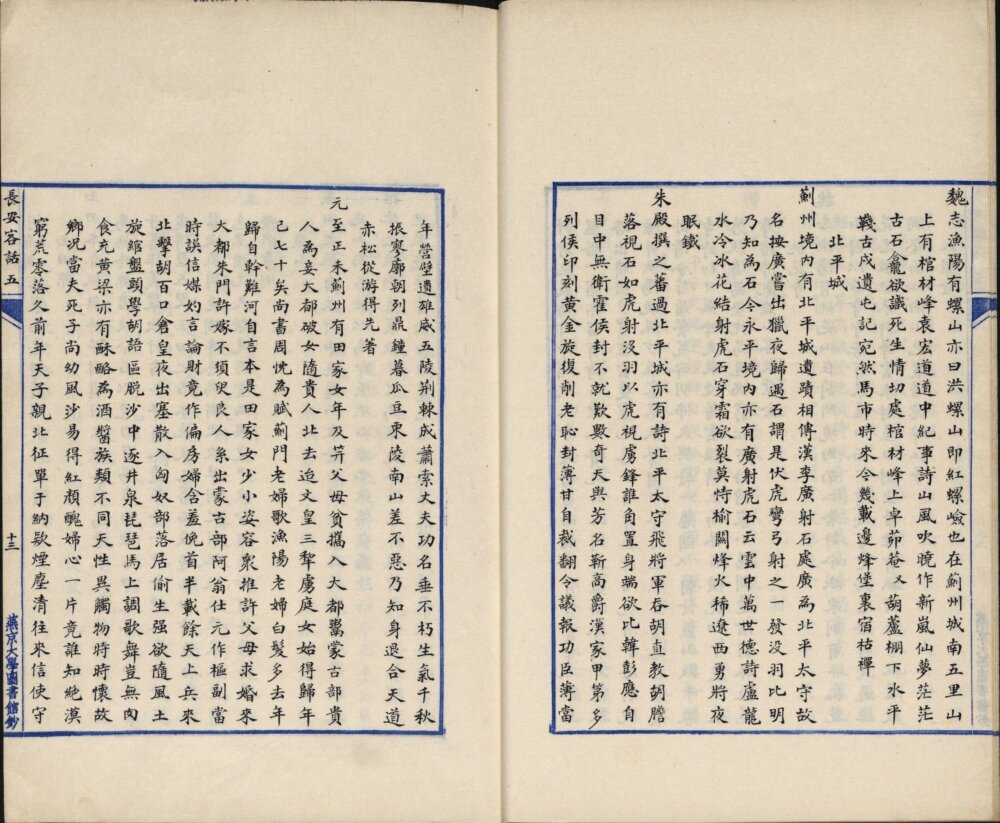 魏志漁陽有螺山亦曰洪螺山即紅螺嶮也在薊州城南五里山
上有棺材峰袁宏道道中紀事詩山風吹曉作新嵐仙夢茫茫
古石龕欲識死生情切處棺材峰上卓茆菴又葫蘆棚下水平
韉古戍遺屯記宛然馬市時來今幾載邊烽堡裏宿枯禪
北平城
薊州境內有北平城遺蹟相傳漢李廣射石處廣為北平太守故
名按廣嘗出獵夜歸遇石謂是伏虎彎弓射之一發没羽比明
乃知為石今永平境內亦有廣射虎石云雲中萬世德詩盧龍
水冷冰花結射虎石穿霜欲裂莫恃榆關烽火稀遼西勇將夜
眠鐵
朱殿撰之蕃過北平城亦有詩北平太守飛將軍吞胡直教胡膽
落視石如虎射没羽以虎視虜鋒誰角置身耑欲比韓彭應自
目中無衛霍侯封不就歎數奇天與芳名靳高爵漢家甲第多
列侯印刻黃金旋復削老恥封薄甘自裁翻令議報功臣薄當
年營壁遺雄威五陵荆棘成蕭索丈夫功名垂不朽生氣千秋
振寥廓朝列鼎鐘暮瓜豆東陵南山差不惡乃知身退合天道
赤松從游得先著
元至正末薊州有田家女年及筓父母貧攜入大都鬻蒙古部貴
人為妾大都破女隨貴人北去迨文皇三犂虜庭女始得歸年
已七十矣尚書周忱為賦薊門老婦歌漁陽老婦白髮多去年
歸自幹難河自言本是田家女少小姿容衆推許父母求婚來
大都朱門許嫁不須臾良人系出蒙古部阿翁仕元作樞副當
時誤信媒妁言論財竟作偏房婦含羞俛首半載餘天上兵來
北擊胡百口倉皇夜出塞散入匈奴部落居偷生强欲隨風土
旋綰盤頭學胡語區脱沙中逐井泉琵琶馬上調歌舞豈無肉
食充黃梁亦有酥酪為酒醬族類不同天性異觸物時時懷故
鄉况當夫死子尚幼風沙易得紅顏醜婦心一片竟誰知絶漠
窮荒零落久前年天子親北征單于納欵煙塵清往來信使守
長安客話 五
十三
燕京大學圖書館鈔